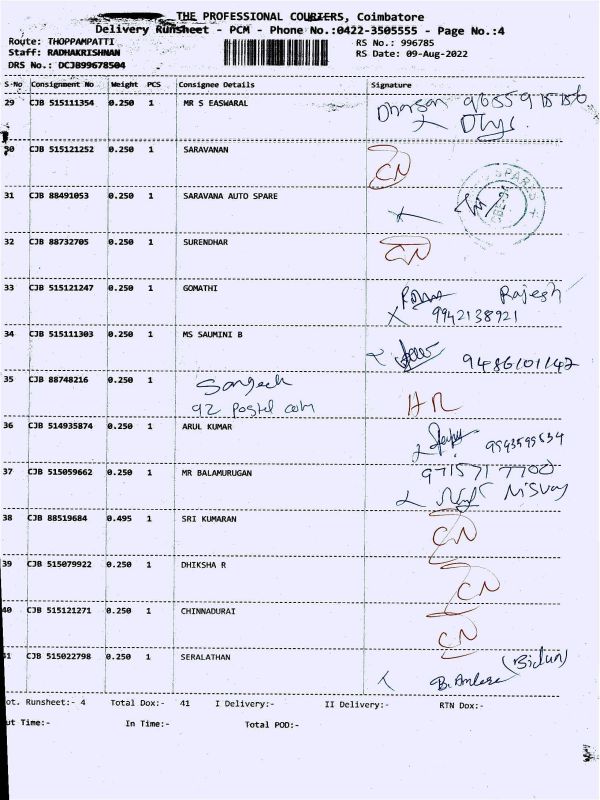 THE PROFESSIONAL COURIERS, Coimbatore
Delivery Runsheet - PCM - Phone No.:0422-3505555 - Page No.:4
Route: THOPPAMPATTI RS No.: 996785
Staff: RADHAKRISHNAN RS Date: 09-Aug-2022
DRS No.: DCJB99678504
S-No Consignment No Weight PCS Consignee Details Signature
29 CJB 515111354 0.250 1 MR S EASWARAL Dharsan
30 CJB 515121252 0.250 1 SARAVANAN CN
31 CJB 88491053 0.250 1 SARAVANA AUTO SPARE
32 CJB 88732705 0.250 1 SURENDHAR CN
33 CJB 515121247 0.250 1 GOMATHI Rajesh
9942138921
34 CJB 515111303 0.250 1 MS SAUMINI B 9486101142
35 CJB 88748216 0.250 1
92 Postel
36 CJB 514935874 0.250 1 ARUL KUMAR
37 CJB 515059662 0.250 1 MR BALAMURUGAN 9715717700
38 CJB 88519684 0.495 1 SRI KUMARAN CN
39 CJB 515079922 0.250 1 DHIKSHA R CN
40 CJB 515121271 0.250 1 CHINNADURAI CN
41 CJB 515022798 0.250 1 SERALATHAN
ot. Runsheet:- 4 Total Dox:- 41 I Delivery:- II Delivery:- RTN Dox:-
ut Time:- In Time:- Total POD:-